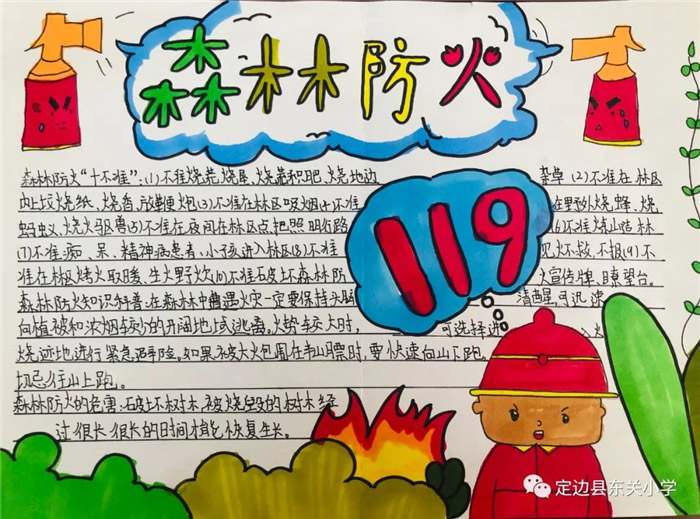 森林防火
119
森林防火"十不准":(1)不准烧荒、烧垦、烧灌积肥、烧地边 杂草(2)不准在林区
内上坟烧纸、烧香、放鞭炮(3)不准在林区吸烟(4)不准 在野外烧蜂、烧
蚂蚁、烧火驱兽(5)不准在夜间在林区点把照明行路 (6)不准炼山造林
(7)不准痴、呆、精神病患者、小孩进入林区(8)不准 见火不救、不报(9)不
准在林板烤火取暖、生火野炊(10)不准破坏森林防 火宣传牌、瞭望台。
森林防火知识科普:在森林中遭遇火灾一定要保持头脑 清醒,迅速
向植被和浓烟较少的开阔地域逃离,火势较大时, 可选择进 入火
烧迹地进行紧急避险。如果被大火包围在半山腰时,要快速向山下跑,
切忌往山上跑。
森林防火的危害:破坏树木被烧毁的树木经
过很长很长的时间才能恢复生长。
定边县东关小学